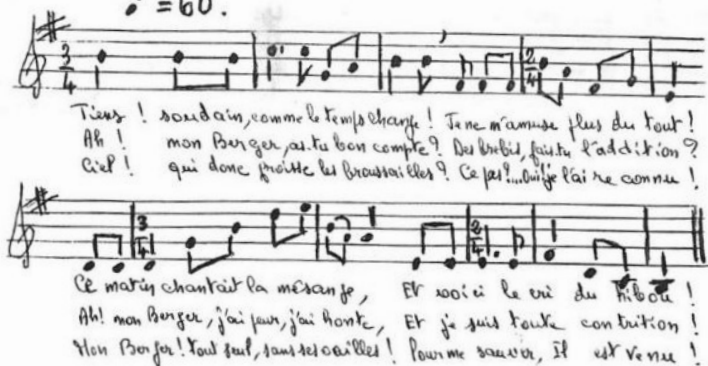 ♩ = 60.
3 4 2 4
Tiens ! soudain, comme le temps change ! Je ne m'amuse plus du tout !
Ah ! mon Berger, as-tu bon compte ? Des brebis, fais-tu l'addition ?
Ciel ! qui donc froisse les broussailles ? Ce pas !... Oui ! je l'ai reconnu !
3 4 2 4
Ce matin chantait la mésange, Et voici le cri du hibou !
Ah ! mon Berger, j'ai peur, j'ai honte, Et je suis toute contrition !
Mon Berger ! tout seul, sans ses ouailles ! Pour me sauver, Il est venu !